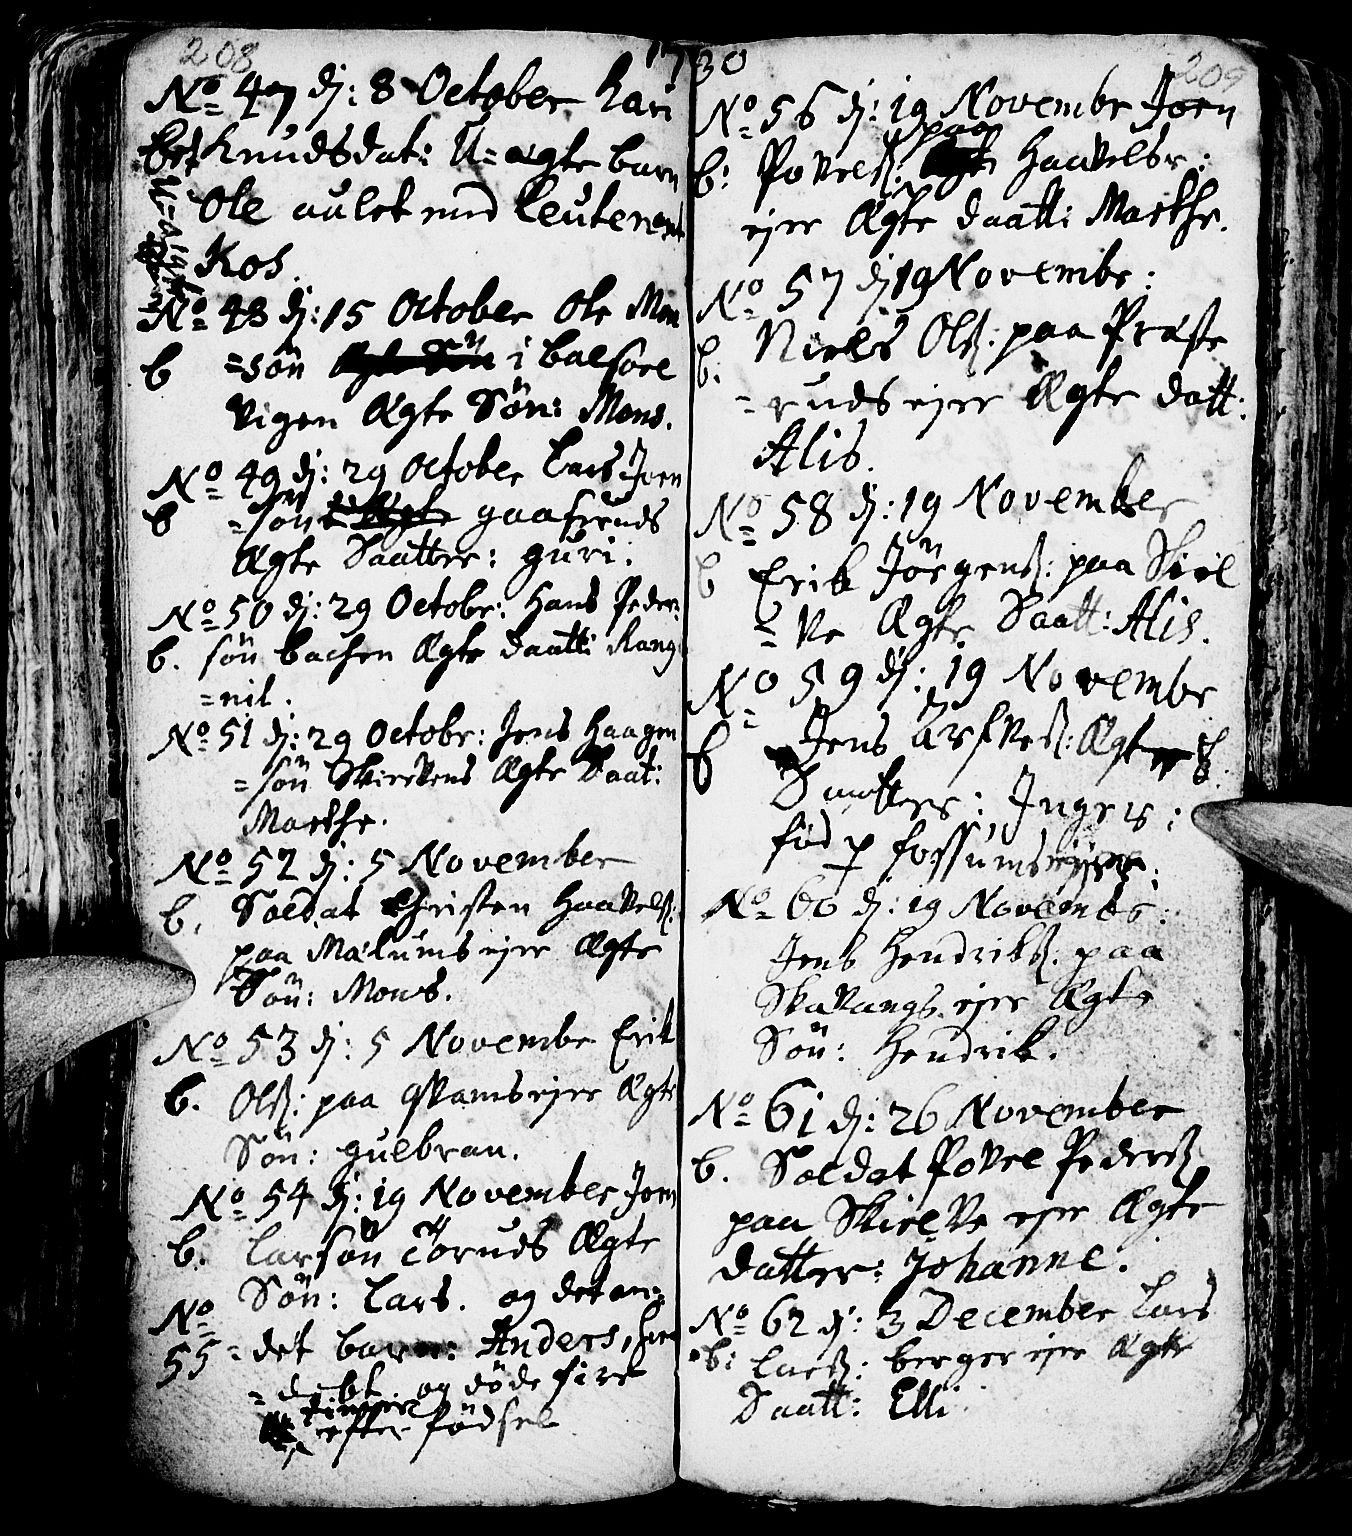 208
1730
No 47 dj: 8 October Kari
Knudsdat: U=ægte barn
U=ægte
Ole aulet med Leutenant
Kos.
No 48 dj: 15 October Ole Mon
b =søn i balsore
vigen Ægte Søn: Mons.
No 49 dj: 29 October Lars Joen
b =søn gaaseruds
Ægte Daatter: guri.
No 50 dj: 29 Octobr: Hans Peder:
b. søn bachen Ægte Daatt: Rang
=nil.
No 51 dj: 29 Octobr: Jens Haagen
=søn Skirevens Ægte Daat:
Marthe.
No 52 dj: 5 November
b. Soldat Christen Haavelß:
paa Mælumsejer Ægte
Søn: Mons.
No 53 dj: 5 Novembr Erik
b. Olß: paa ejer Ægte
Søn: gulbran.
No 54 dj: 19 November Joen
b. Larsøn Tøruds Ægte
Søn: Lars. og det an:
No 55 =det barn: Anders,
=døbt. og døde fire
timer
efter fødsel
209
No 56 dj: 19 Novembr Joen
b: Povelß: paa Haavelsr:
ejer Ægte daatt: Marthe.
No 57 dj 19 Novembr:
b: Niels Olß: paa Præste
=rudsejer Ægte datt:
Alis.
No 58 dj: 19 November
b Erik Jørgenß: paa Skiel
=ve Ægte Daatt: Alis.
No 59 dj: 19 Novembr
b Jens Ægte
Daatter: Inger:
fød p fossumsejer:
No 60 dj: 19 Novembr:
Jens Hendriksß: paa
Skavangs ejer Ægte
Søn: Hendrik.
No 61 dj: 26 November
b. Soldat Povel Pederß
paa Skielve ejer Ægte
datter: Johanne.
No 62 dj: 3 December Lars
b: Larß: bergerejer Ægte
Daatt: Elli